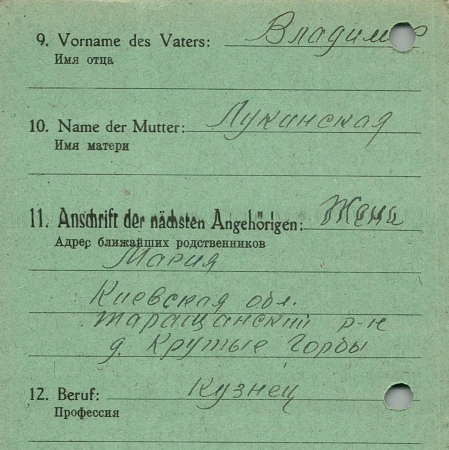 9. Vorname des Vaters: Владимир
Имя отца
10. Name der Mutter: Лукинская
Имя матери
11. Anschrift der nächsten Angehörigen: Жена
Адрес ближайших родственников
Мария
Киевская обл.
таращанский р-н
д. Крутые Горбы
12. Beruf: Кузнец
Профессия